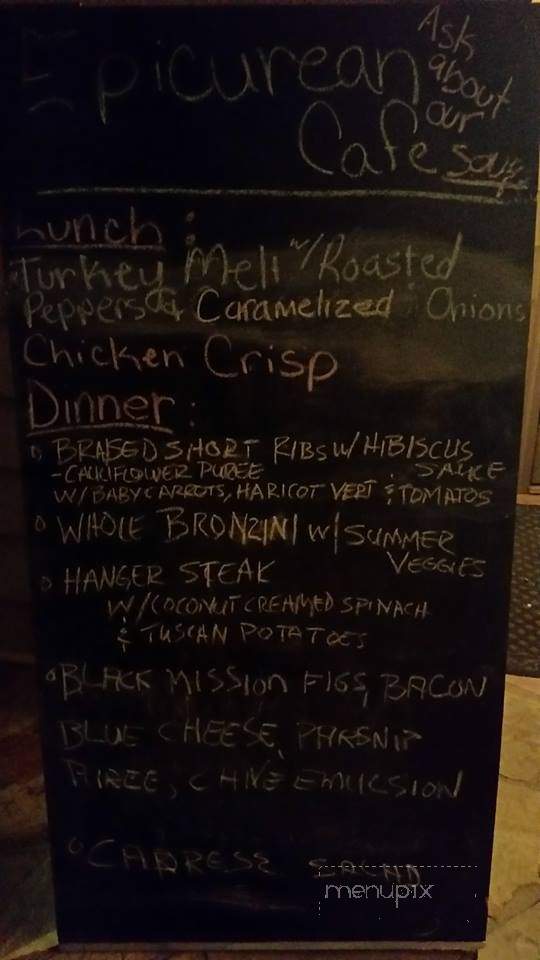 Epicurean
Cafe
Ask
about
our
soup
Lunch:
Turkey Melt w/ Roasted
Peppers & Caramelized Onions
Chicken Crisp
Dinner:
BRAISED SHORT RIBS W/ HIBISCUS
SAUCE
- CAULIFLOWER PUREE
W/ BABY CARROTS, HARICOT VERT & TOMATOS
WHOLE BRONZINI W/ SUMMER
VEGGIES
HANGER STEAK
W/ COCONUT CREAMED SPINACH
& TUSCAN POTATOES
BLACK MISSION FIGS, BACON
BLUE CHEESE, PARSNIP
PUREE, CHIVE EMULSION
CAPRESE SALAD
menupix